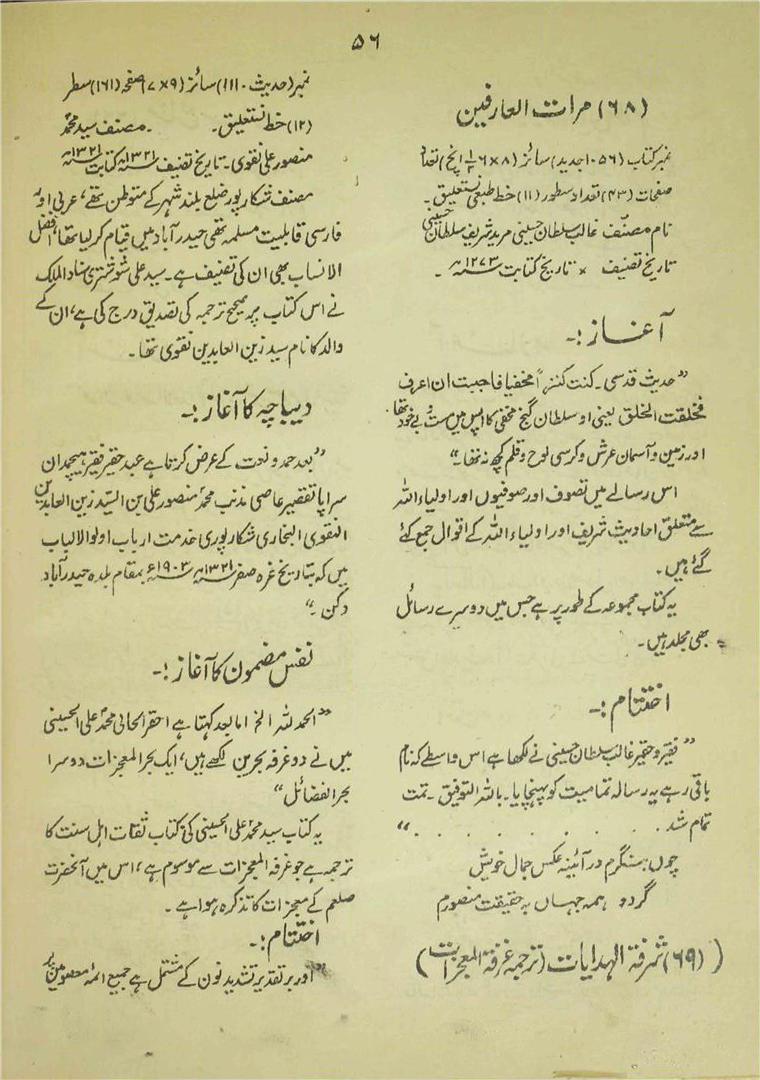 ۵۶
(۶۸) مرات العارفین
نمبر کتاب (۱۰۵۶ جدید) سائز (۸×۶ ۱/۲ انچ) تعداد
صفحات (۴۳) تعداد سطور (۱۱) خط طبعی نستعلیق۔
نام مصنّف غالب سلطان حسینی مرید شریف سلطان حسینی
تاریخ تصنیف × تاریخ کتابت ۱۲۷۳ھ ۔
آغاز :۔
”حدیث قدسی۔ کنت کنزاً مخفیا فاجبت ان اعرف
فخلقت الخلق یعنی او سلطان گنج مخفی کا اپس میں مست و بے خود تھا
اور زمین و آسمان عرش و کرسی لوح و قلم کچھ نہ تھا۔“
اس رسالے میں تصوف اور صوفیوں اور اولیاء اللہ
سے متعلق احادیث شریف اور اولیاء اللہ کے اقوال جمع کئے
گئے ہیں۔
یہ کتاب مجموعہ کے طور پر ہے جس میں دوسرے رسائل
بھی مجلد ہیں۔
اختتام :۔
”فقیر و حقیر غالب سلطان حسینی نے لکھا ہے اس واسطے کہ نام
باقی رہے یہ رسالہ تمامیت کو پہنچایا۔ باللہ التوفیق۔ تمت
تمام شد . . . . . . . . . . “
چوں بنگرم در آئینہ عکس جمال خویش
گردد ہمہ جہاں بہ حقیقت منصورم
(۶۹) ثمرفۃ الہدایات (ترجمہ غرفۃ المعجزات)
نمبر (حدیث ۱۱۱۰) سائز (۹×۷) صفحہ (۱۶۱) سطر
(۱۲) خط نستعلیق۔ ۔مصنف سید محمد
منصور علی نقوی۔ تاریخ تصنیف ۱۳۲۱ھ کتابت ۱۳۲۱ھ
مصنف شکارپور ضلع بلند شہر کے متوطن تھے، عربی اور
فارسی قابلیت مسلمہ تھی حیدرآباد میں قیام کر لیا تھا، افضل
الانساب بھی ان کی تصنیف ہے۔ سید علی شوشتری سناد الملک
نے اس کتاب پر صحیح ترجمہ کی تصدیق درج کی ہے، ان کے
والد کا نام سید زین العابدین نقوی تھا۔
دیباچہ کا آغاز :۔
”بعد حمد و نعت کے عرض کرتا ہے عبد حقیر فقیر ہیچمدان
سراپا تقصیر عاصی مذنب محمد منصور علی بن السّید زین العابدین
النقوی البخاری شکارپوری خدمت ارباب اولو الالباب
میں کہ بتاریخ غرہ صفر ۱۳۲۱ھ ۱۹۰۳ء بمقام بلدہ حیدرآباد
دکن۔“
نفس مضمون کا آغاز :۔
”الحمد للہ الخ امابعد کہتا ہے احقر الحانی محمد علی الحسینی
میں نے دو غرفہ بحرین لکھے ہیں، ایک بحر المعجزات دوسرا
بحر الفضائل“
یہ کتاب سید محمد علی الحسینی کی کتاب ثقات اہل سنت کا
ترجمہ ہے جو غرفہ المعجزات سے موسوم ہے، اس میں آنحضرت
صلعم کے معجزات کا تذکرہ ہوا ہے۔
اختتام :۔
”اور بر تقدیر تشدید نون کے مشتمل ہے جمیع ائمۂ معصومین پر